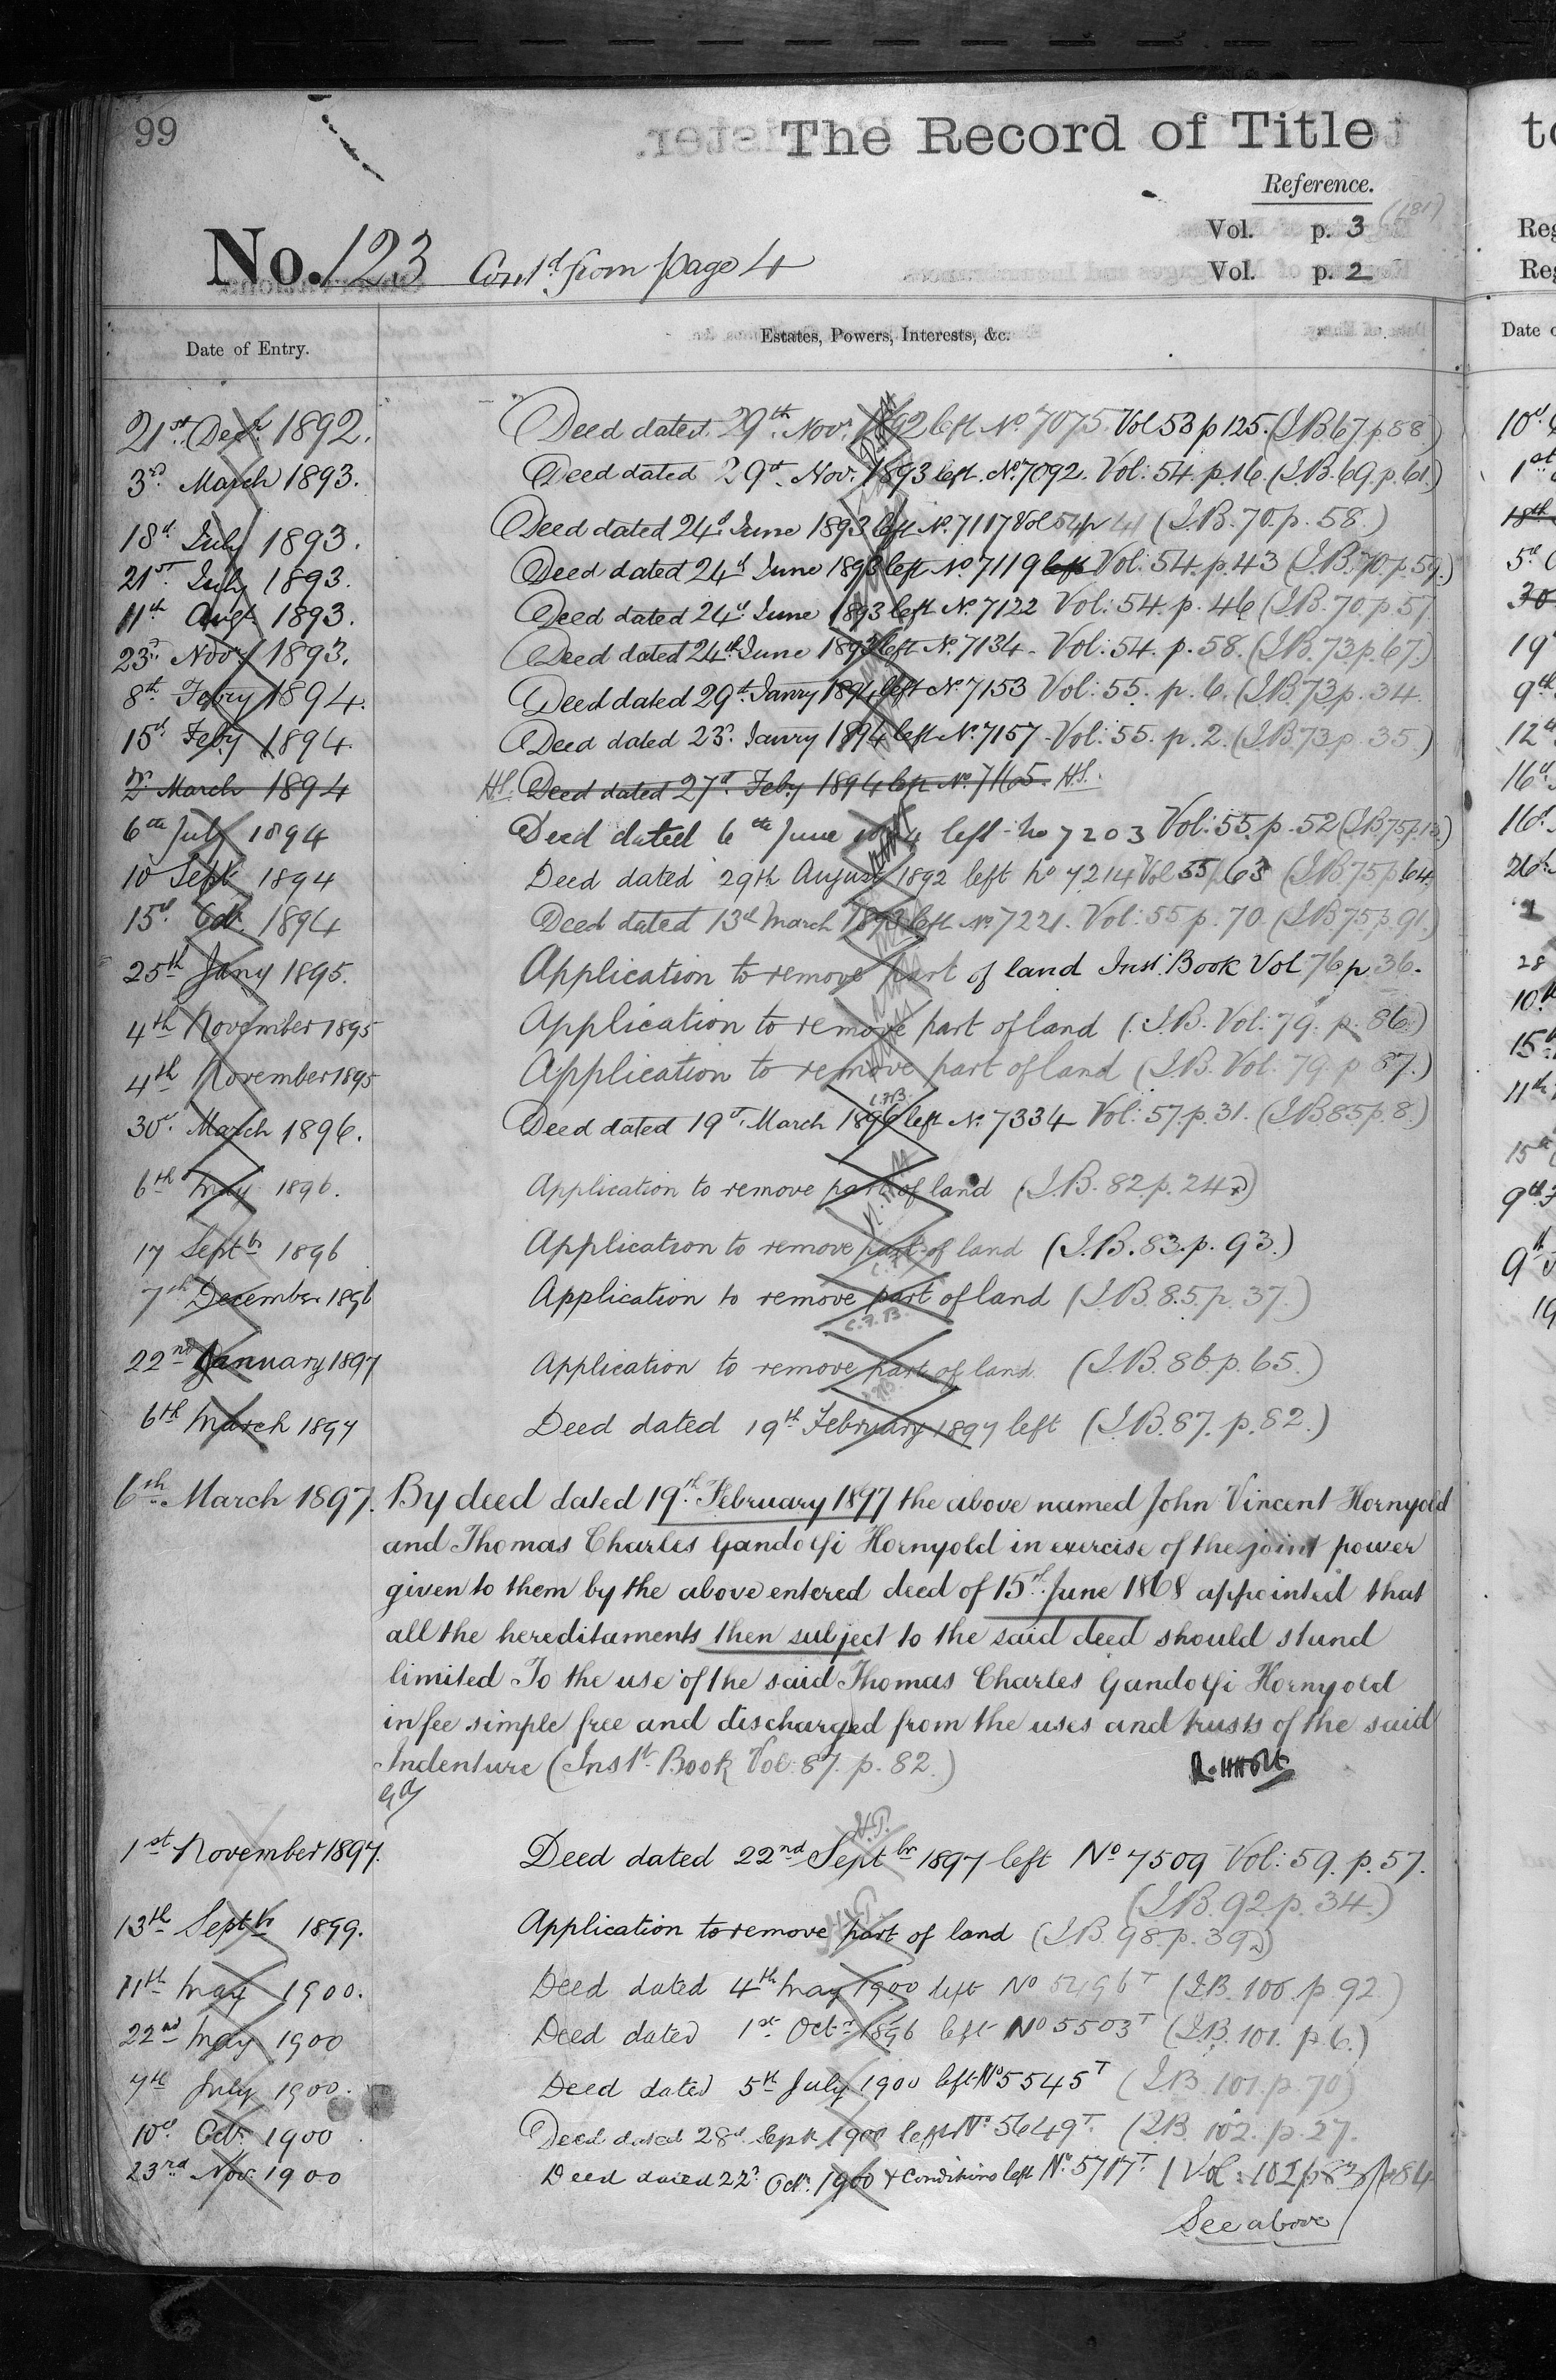 99
The Record of Title
Reference.
Vol. p. 3 (181)
No. 123 Cont.d from page 4
Vol. p. 2
Date of Entry.
Estates, Powers, Interests, &c.
21st Decr 1892. Deed dated 29th Novr. 1892 left No. 7075. Vol 53 p 125. (I.B. 67 p. 88.)
3rd March 1893. Deed dated 29th Nov. 1893 left. No. 7092. Vol: 54. p. 16. (I.B. 69. p. 61.)
18th July 1893. Deed dated 24th June 1893 left No. 7117 Vol 54 p 41 (I.B. 70. p. 58.)
21st July 1893. Deed dated 24th June 1893 left No. 7119 left Vol: 54. p. 43 (I.B. 70. p. 59.)
11th Augt 1893. Deed dated 24th June 1893 left No. 7122 Vol: 54. p. 46 (I.B. 70 p. 57.
23rd Novr 1893. Deed dated 24th June 1893 left No. 7134 - Vol: 54. p. 58. (I.B. 73 p. 67.)
8th Febry 1894. Deed dated 29th Janry 1894 left No. 7153 Vol: 55. p. 6. (I.B. 73 p. 34.
15th Feby 1894. Deed dated 23rd Janry 1894 left No. 7157 - Vol: 55. p. 2. (I.B. 73 p. 35.)
2nd March 1894 H.S. Deed dated 27th Feby 1894 left No. 7165. H.S.
6th July 1894 Deed dated 6th June 1894 left - No 7203 Vol: 55. p. 52 (I.B. 75 p. 13)
10 Sept 1894 Deed dated 29th August 1892 left No 7214 Vol 55 p. 63 (I.B. 75 p 64
15th Oct. 1894 Deed dated 13th March 1893 left No. 7221. Vol: 55 p. 70. (I.B. 75 p. 91.)
25th Jany 1895. Application to remove part of land Inst. Book Vol 76 p. 36.
4th November 1895 Application to remove part of land (I.B. Vol: 79. p. 86.)
4th November 1895 Application to remove part of land (I.B. Vol: 79. p 87.)
C.F.B.
30th March 1896. Deed dated 19th March 1896 left No. 7334 Vol: 57. p. 31. (I.B 85 p. 8.)
6th May 1896. Application to remove part of land (I.B. 82. p. 24a)
17 Septbr 1896 Application to remove part of land (I.B. 83. p. 93.)
7th December 1896 Application to remove part of land (I.B. 85. p. 37.)
C.F.B.
22nd January 1897 Application to remove part of land. (I.B. 86. p. 65.)
6th March 1897 Deed dated 19th February 1897 left (I.B. 87. p. 82.)
6th March 1897. By deed dated 19th February 1897 the above named John Vincent Hornyold
and Thomas Charles Gandolfi Hornyold in exercise of the joint power
given to them by the above entered deed of 15th June 1868 appointed that
all the hereditaments then subject to the said deed should stand
limited To the use of the said Thomas Charles Gandolfi Hornyold
in fee simple free and discharged from the uses and trusts of the said
Indenture (Inst. Book Vol: 87. p. 82.) R. H. Holt
1st November 1897. Deed dated 22nd Septbr 1897 left No 7509 Vol: 59. p. 57.
(I.B. 92 p. 34.)
13th Septbr 1899. Application to remove part of land (I.B. 98. p. 39a)
11th May 1900. Deed dated 4th May 1900 left No 5496T (I.B. 100. p. 92.)
22nd May 1900 Deed dated 1st Octr 1896 left No 5503T (I.B. 101. p. 6.)
7th July 1900. Deed dated 5th July 1900 left No 5545T (I.B. 101. p. 70)
10th Oct. 1900 Deed dated 28th Sept. 1900 left No. 5649T. (I.B. 102. p. 27.
23rd Nov. 1900 Deed dated 22nd Octr. 1900 & Conditions left No. 5717T
See above